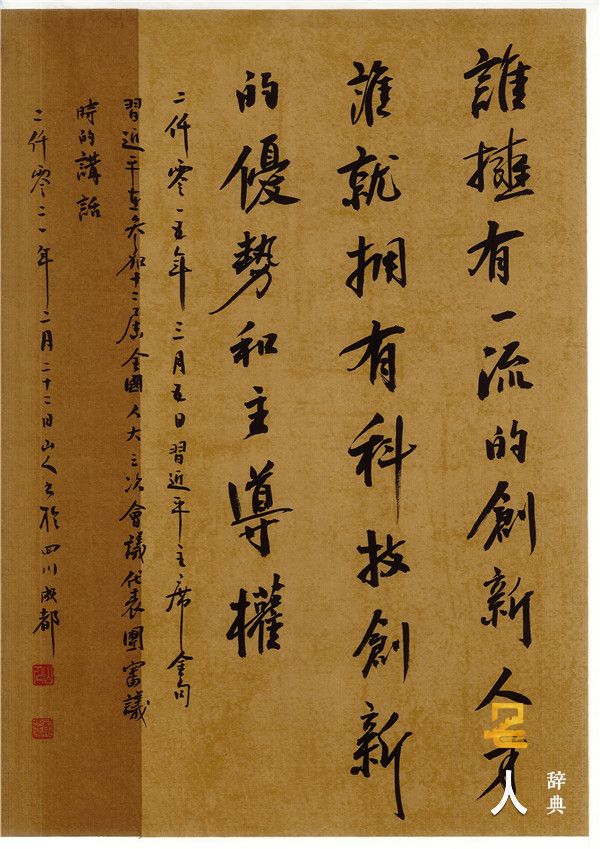 誰擁有一流的創新人才
誰就拥有科技創新
的優勢和主導權
二仟零一五年三月五日習近平主席金句
習近平在參加十二屆全國人大三次會議代表團審議
時的講話
二仟零二一年二月二十二日山人书於四川成都
名人
辞典